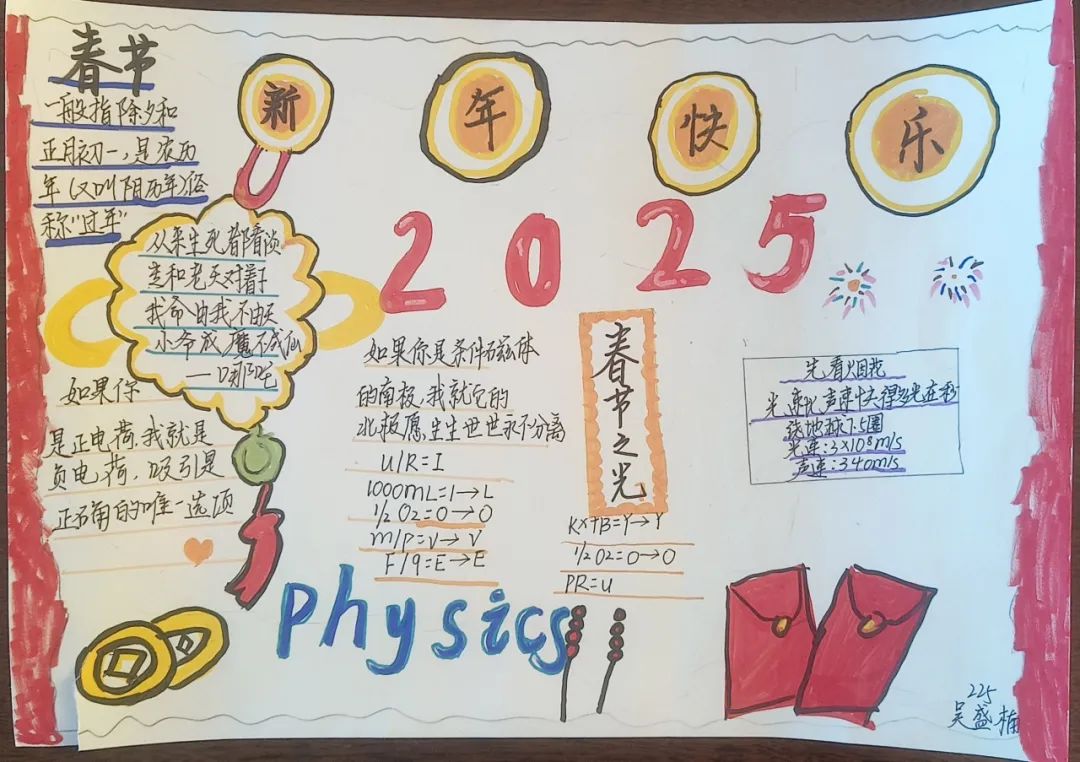 春节
一般指除夕和
正月初一,是农历
年(又叫阴历年)俗
称"过年"
新
年
快
乐
2025
从来生死都看淡
专和老天对着干
我命由我不由天
小爷成魔不成仙
—哪吒
如果你
是正电荷,我就是
负电荷,吸引是
正确的唯一选项
如果你是条件磁体
的南极,我就它的
北极愿生生世世永不分离
U/R=I
1000mL=1→L
1/2 O2=O→O
m/ρ=v→v
F/q=E→E
春节之光
Kx+B=Y→Y
1/2 O2=O→O
PR=u
先看烟花
光速比声速快得多光在1秒
绕地球7.5圈
光速:3×108m/s
声速:340m/s
Physics
225
吴盛楠